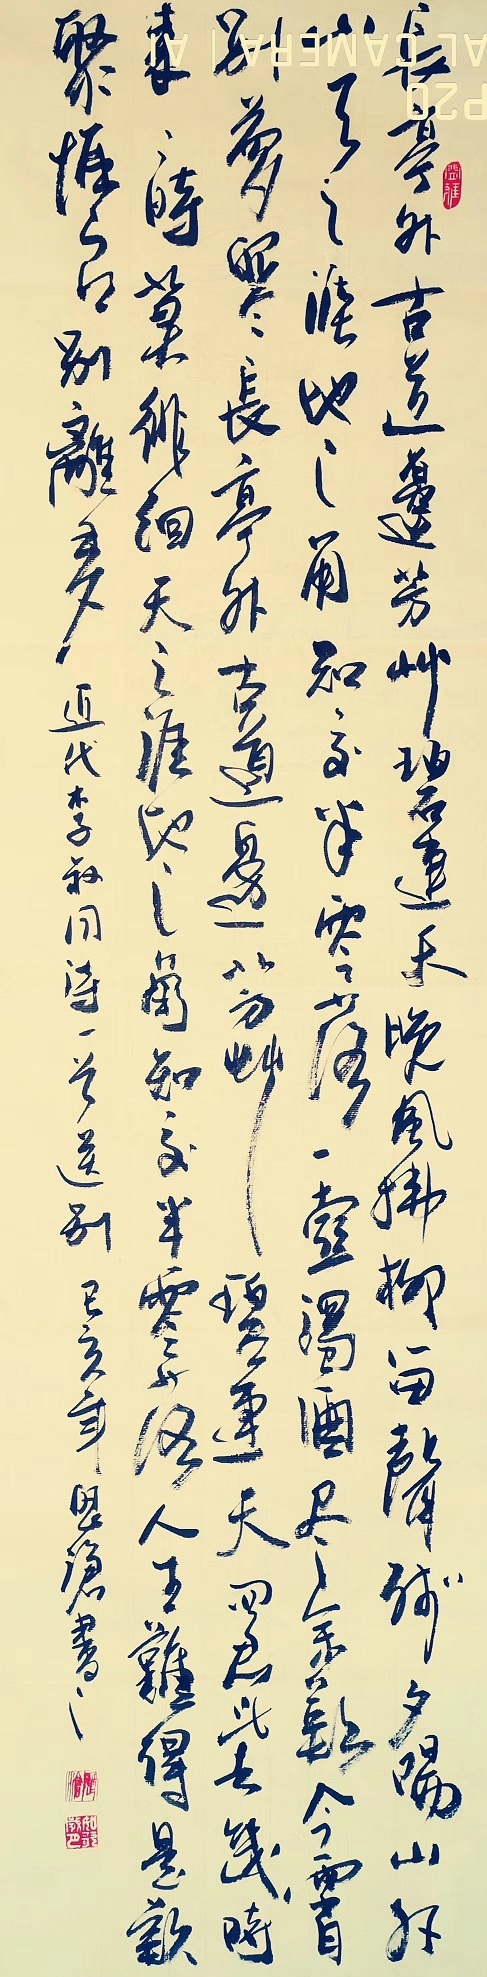 長亭外古道邊芳艸碧連天晚風拂柳笛聲殘夕陽山外
山天之涯地之角知交半零落一壺濁酒尽余歡今宵
別夢寒長亭外古道邊芳艸碧連天問君此去幾時
来〻時莫徘徊天之涯地之角知交半零落人生難得是歡
聚惟有別離多 近代李叔同詩一首送別 己亥年 書之
P20
AL CAMERA | AI